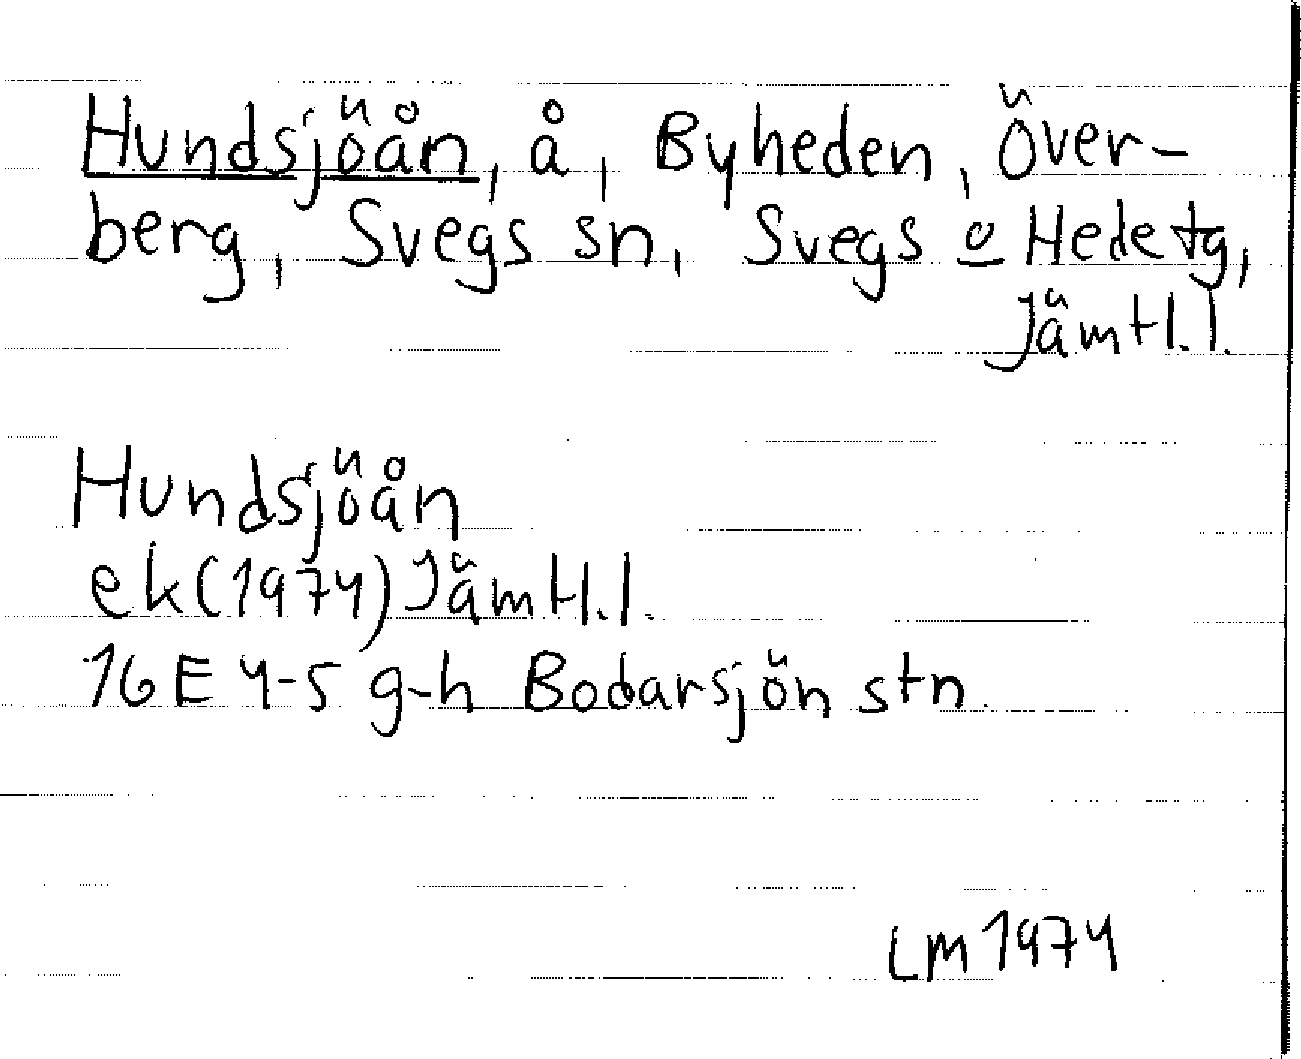 Hundsjöån, å, Byheden, Över-
berg, Svegs sn, Svegs o Hede tg,
Jämtl. l.
Hundsjöån
ek (1974) Jämtl. l.
16 E 4-5 g-h Bodarsjön stn
LM 1974